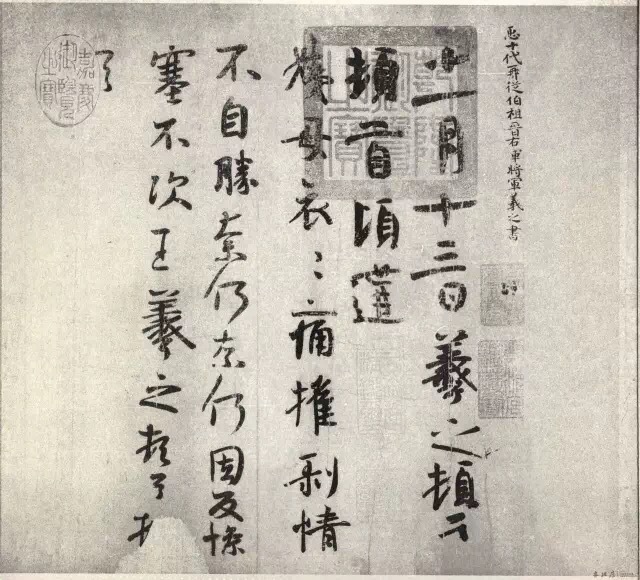 臣十代再從伯祖晉右軍將軍羲之書
十一月十三日羲之頓首
頓首頃遘
姨母哀〻痛摧剝情
不自勝奈何奈何因反慘
塞不次王羲之頓首頓
首
乾隆御覽之寶
嘉慶御覽之寶